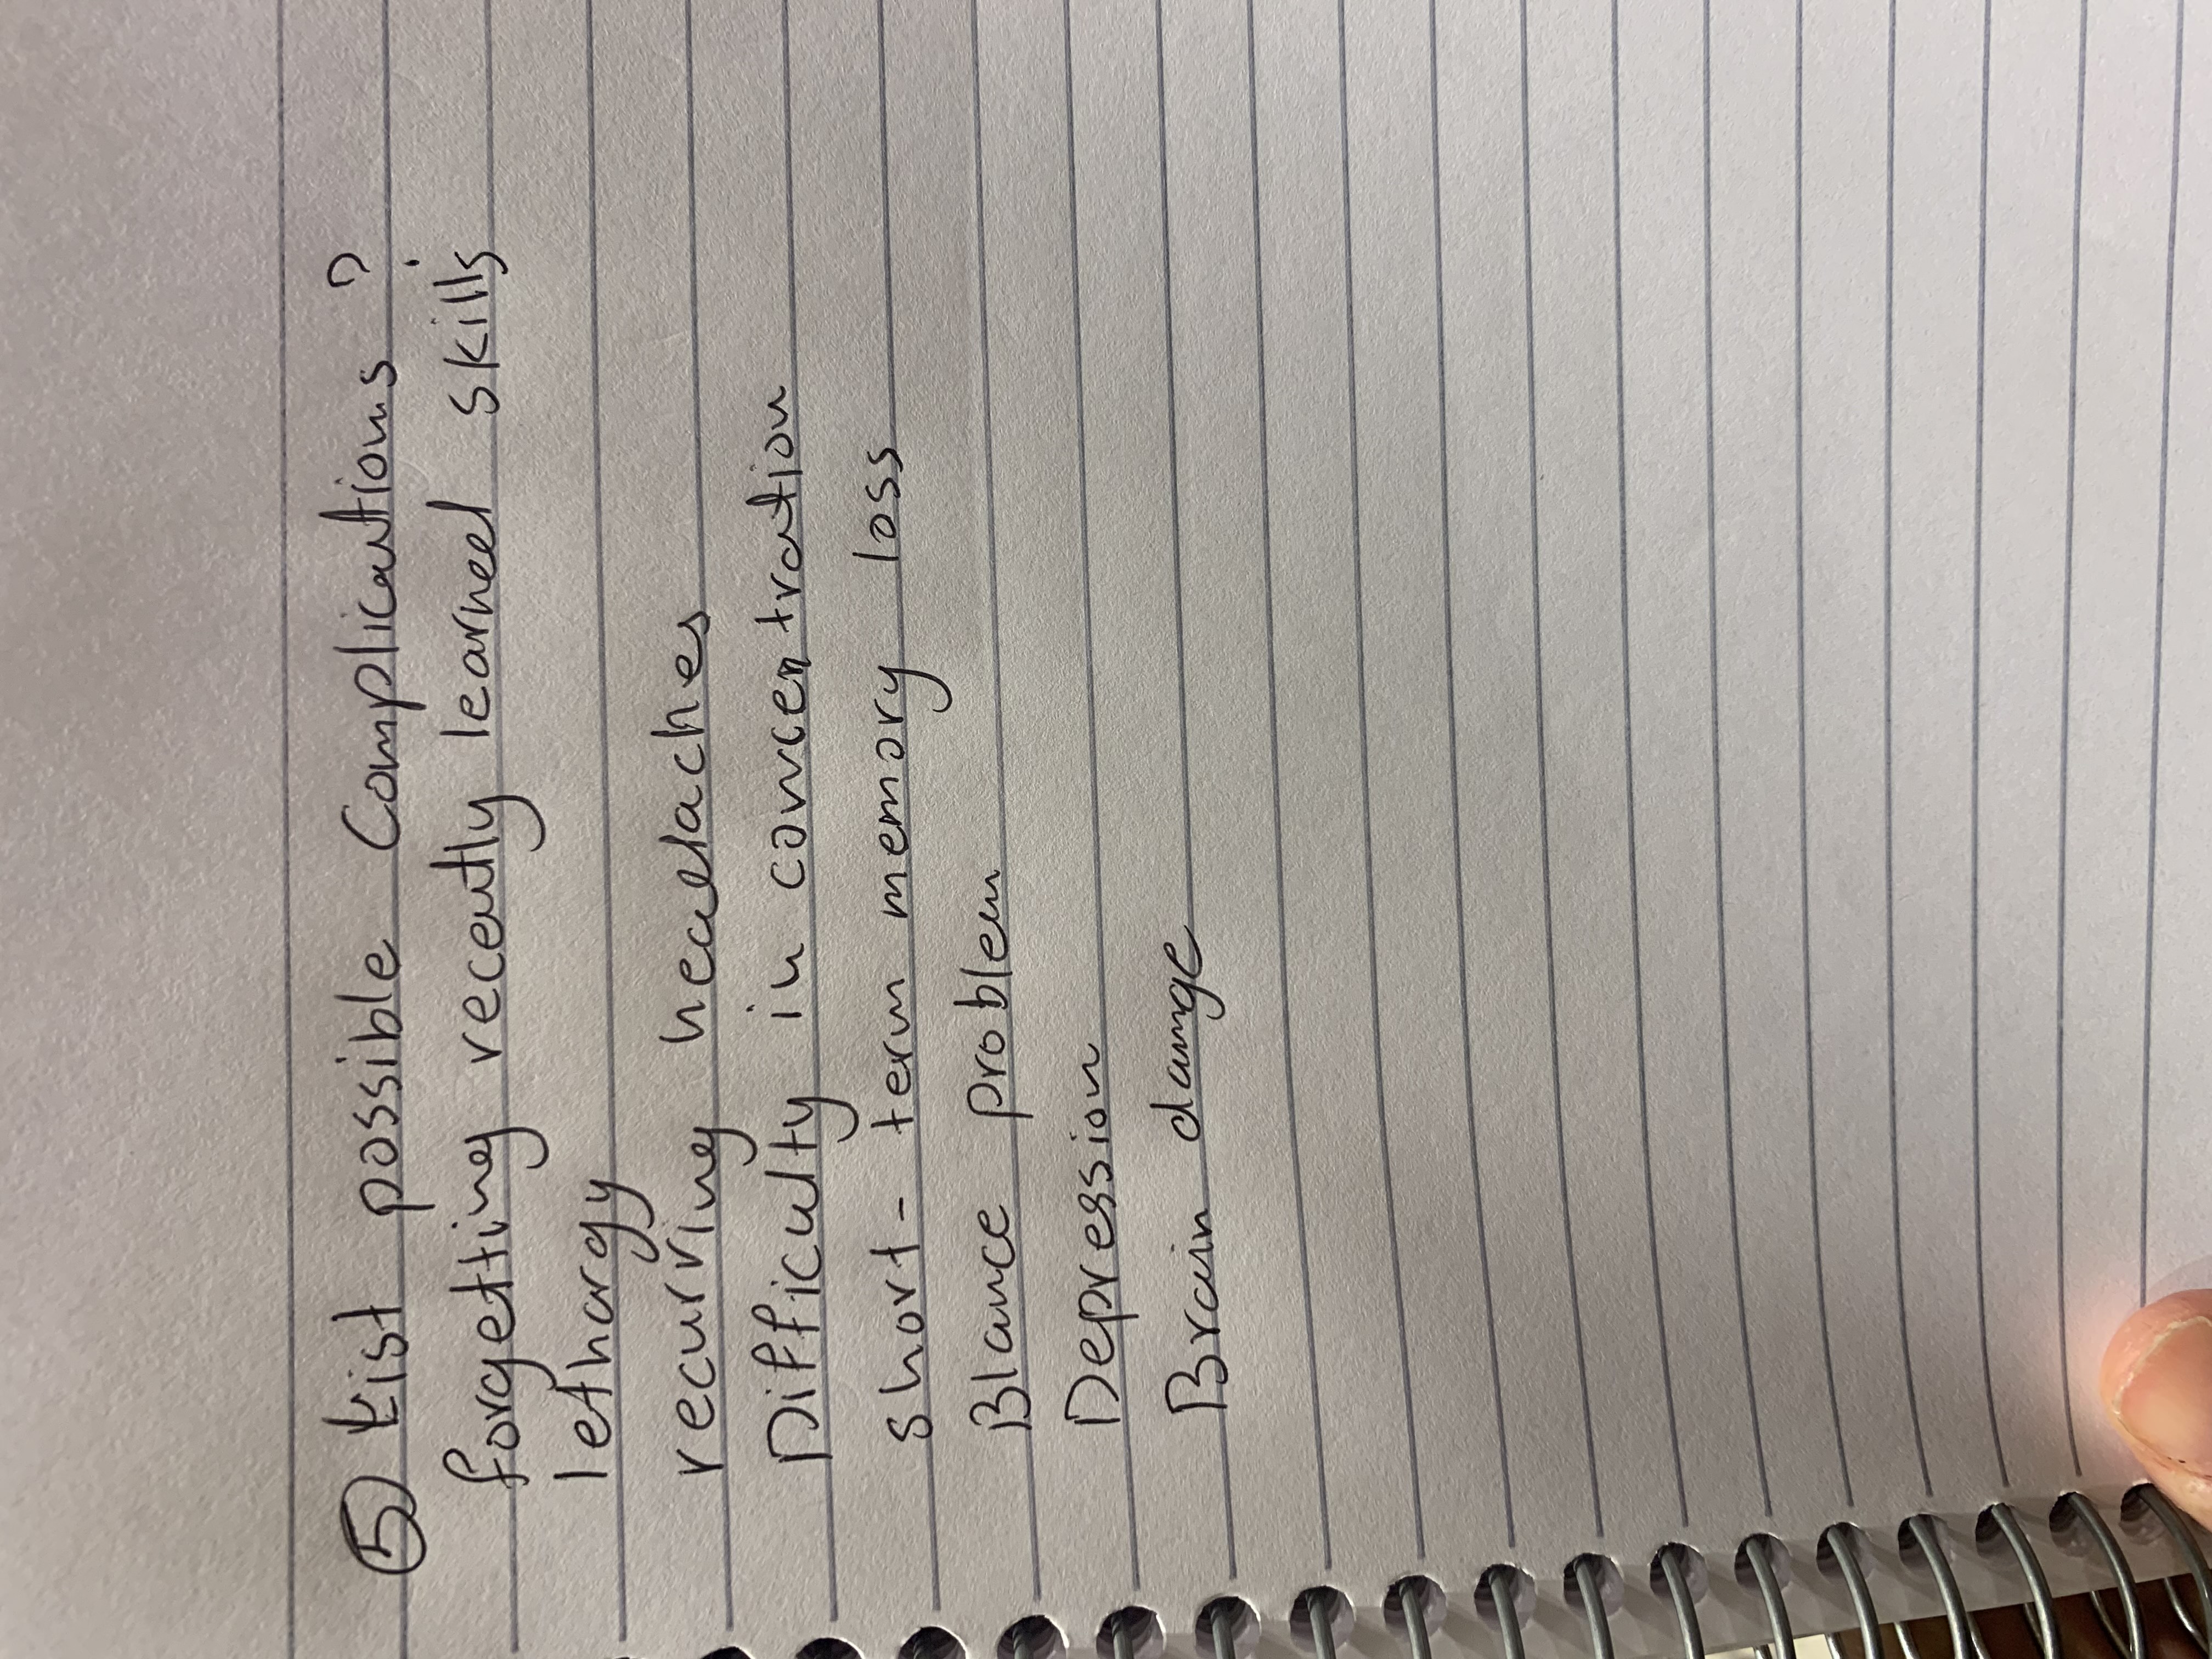 ⑤ List possible Complications ?
forgetting recently learned skills.
lethargy
recurring headaches
Difficulty in concentration
short-term memory loss
Blance problem
Depression
Brain damge